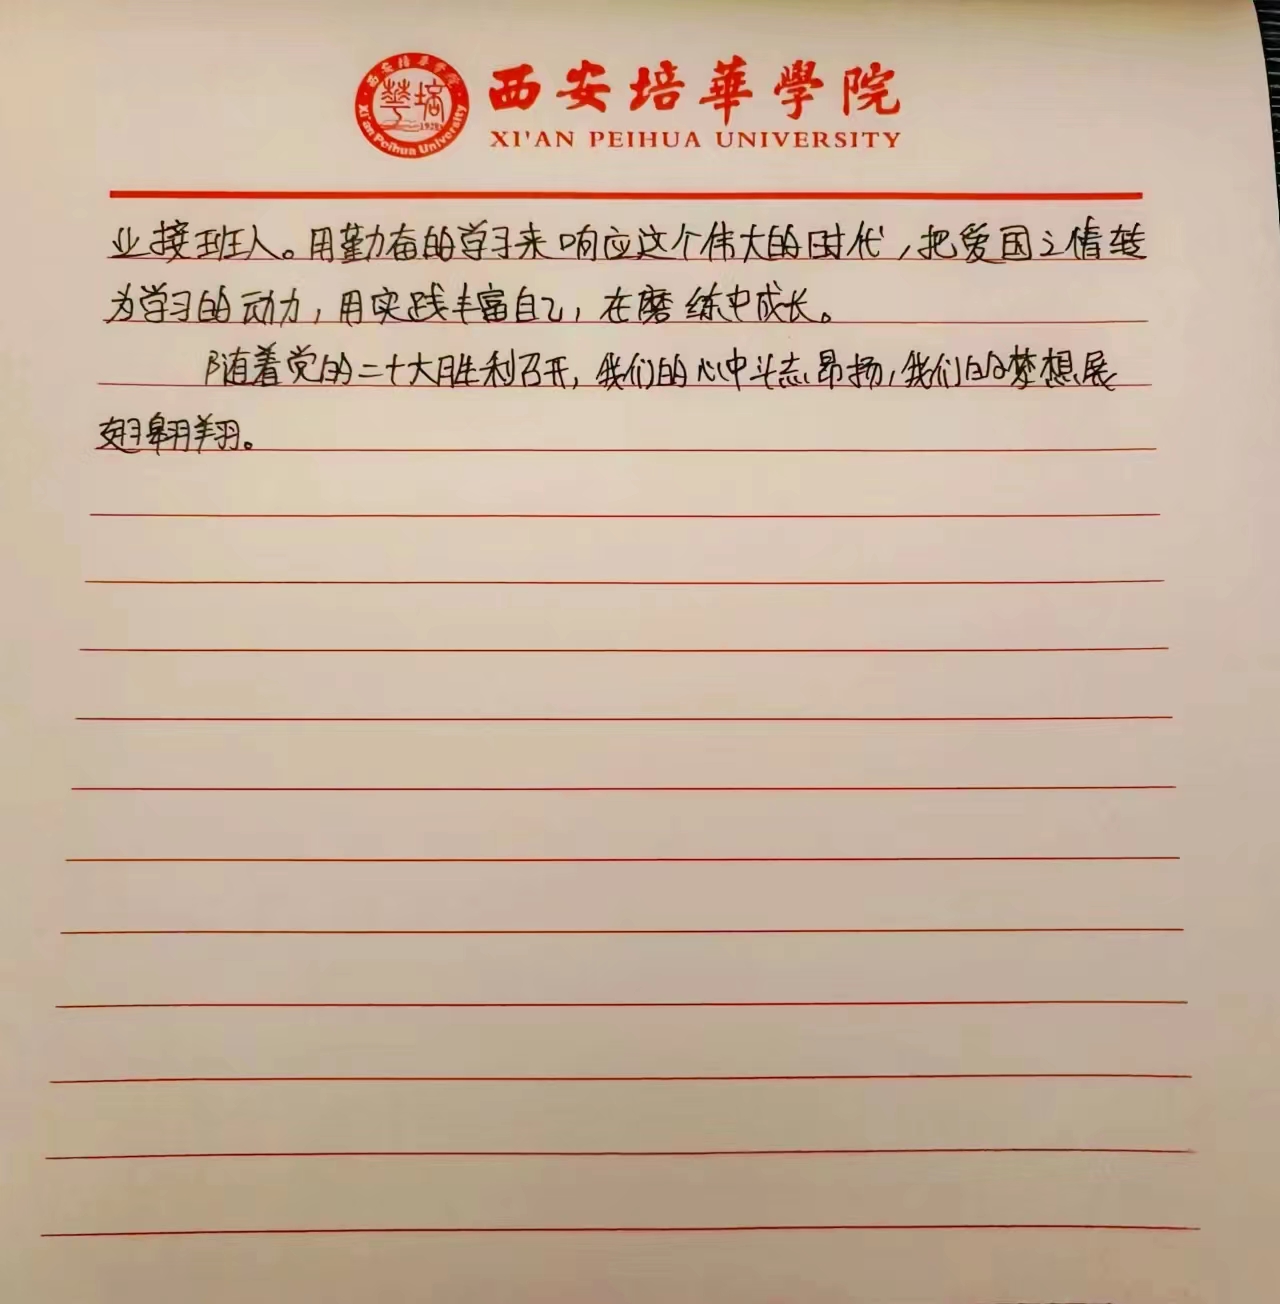 西安培華學院
XI'AN PEIHUA UNIVERSITY
西安培华学院
華培
1928
Xi'an Peihua University
业接班人。用勤奋的学习来响应这个伟大的时代，把爱国之情转
为学习的动力，用实践丰富自己，在磨练中成长。
随着党的二十大胜利召开，我们的心中斗志昂扬，我们的梦想展
翅翱翔。